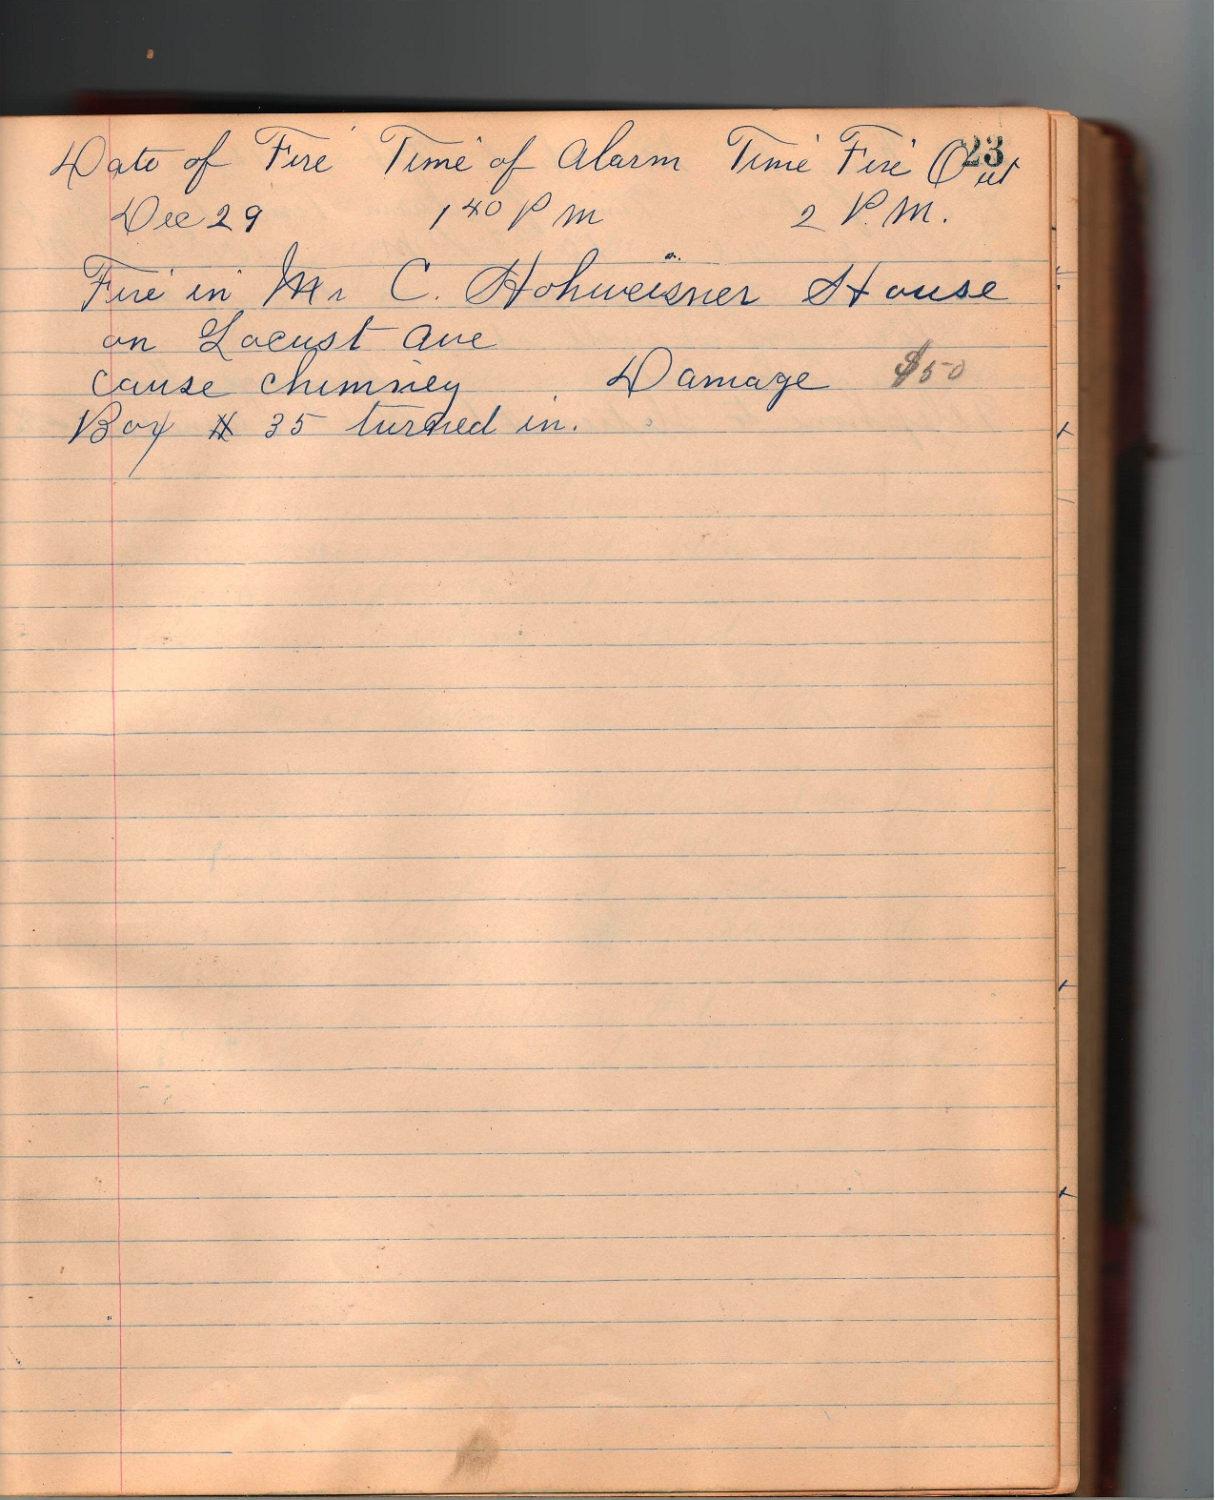 23
Date of Fire Time of Alarm Time Fire Out
Dec 29 1 40 P m 2 P.M.
Fire in Mr C. Hohweisner House
on Locust Ave
Cause Chimney Damage $50
Box # 35 turned in.